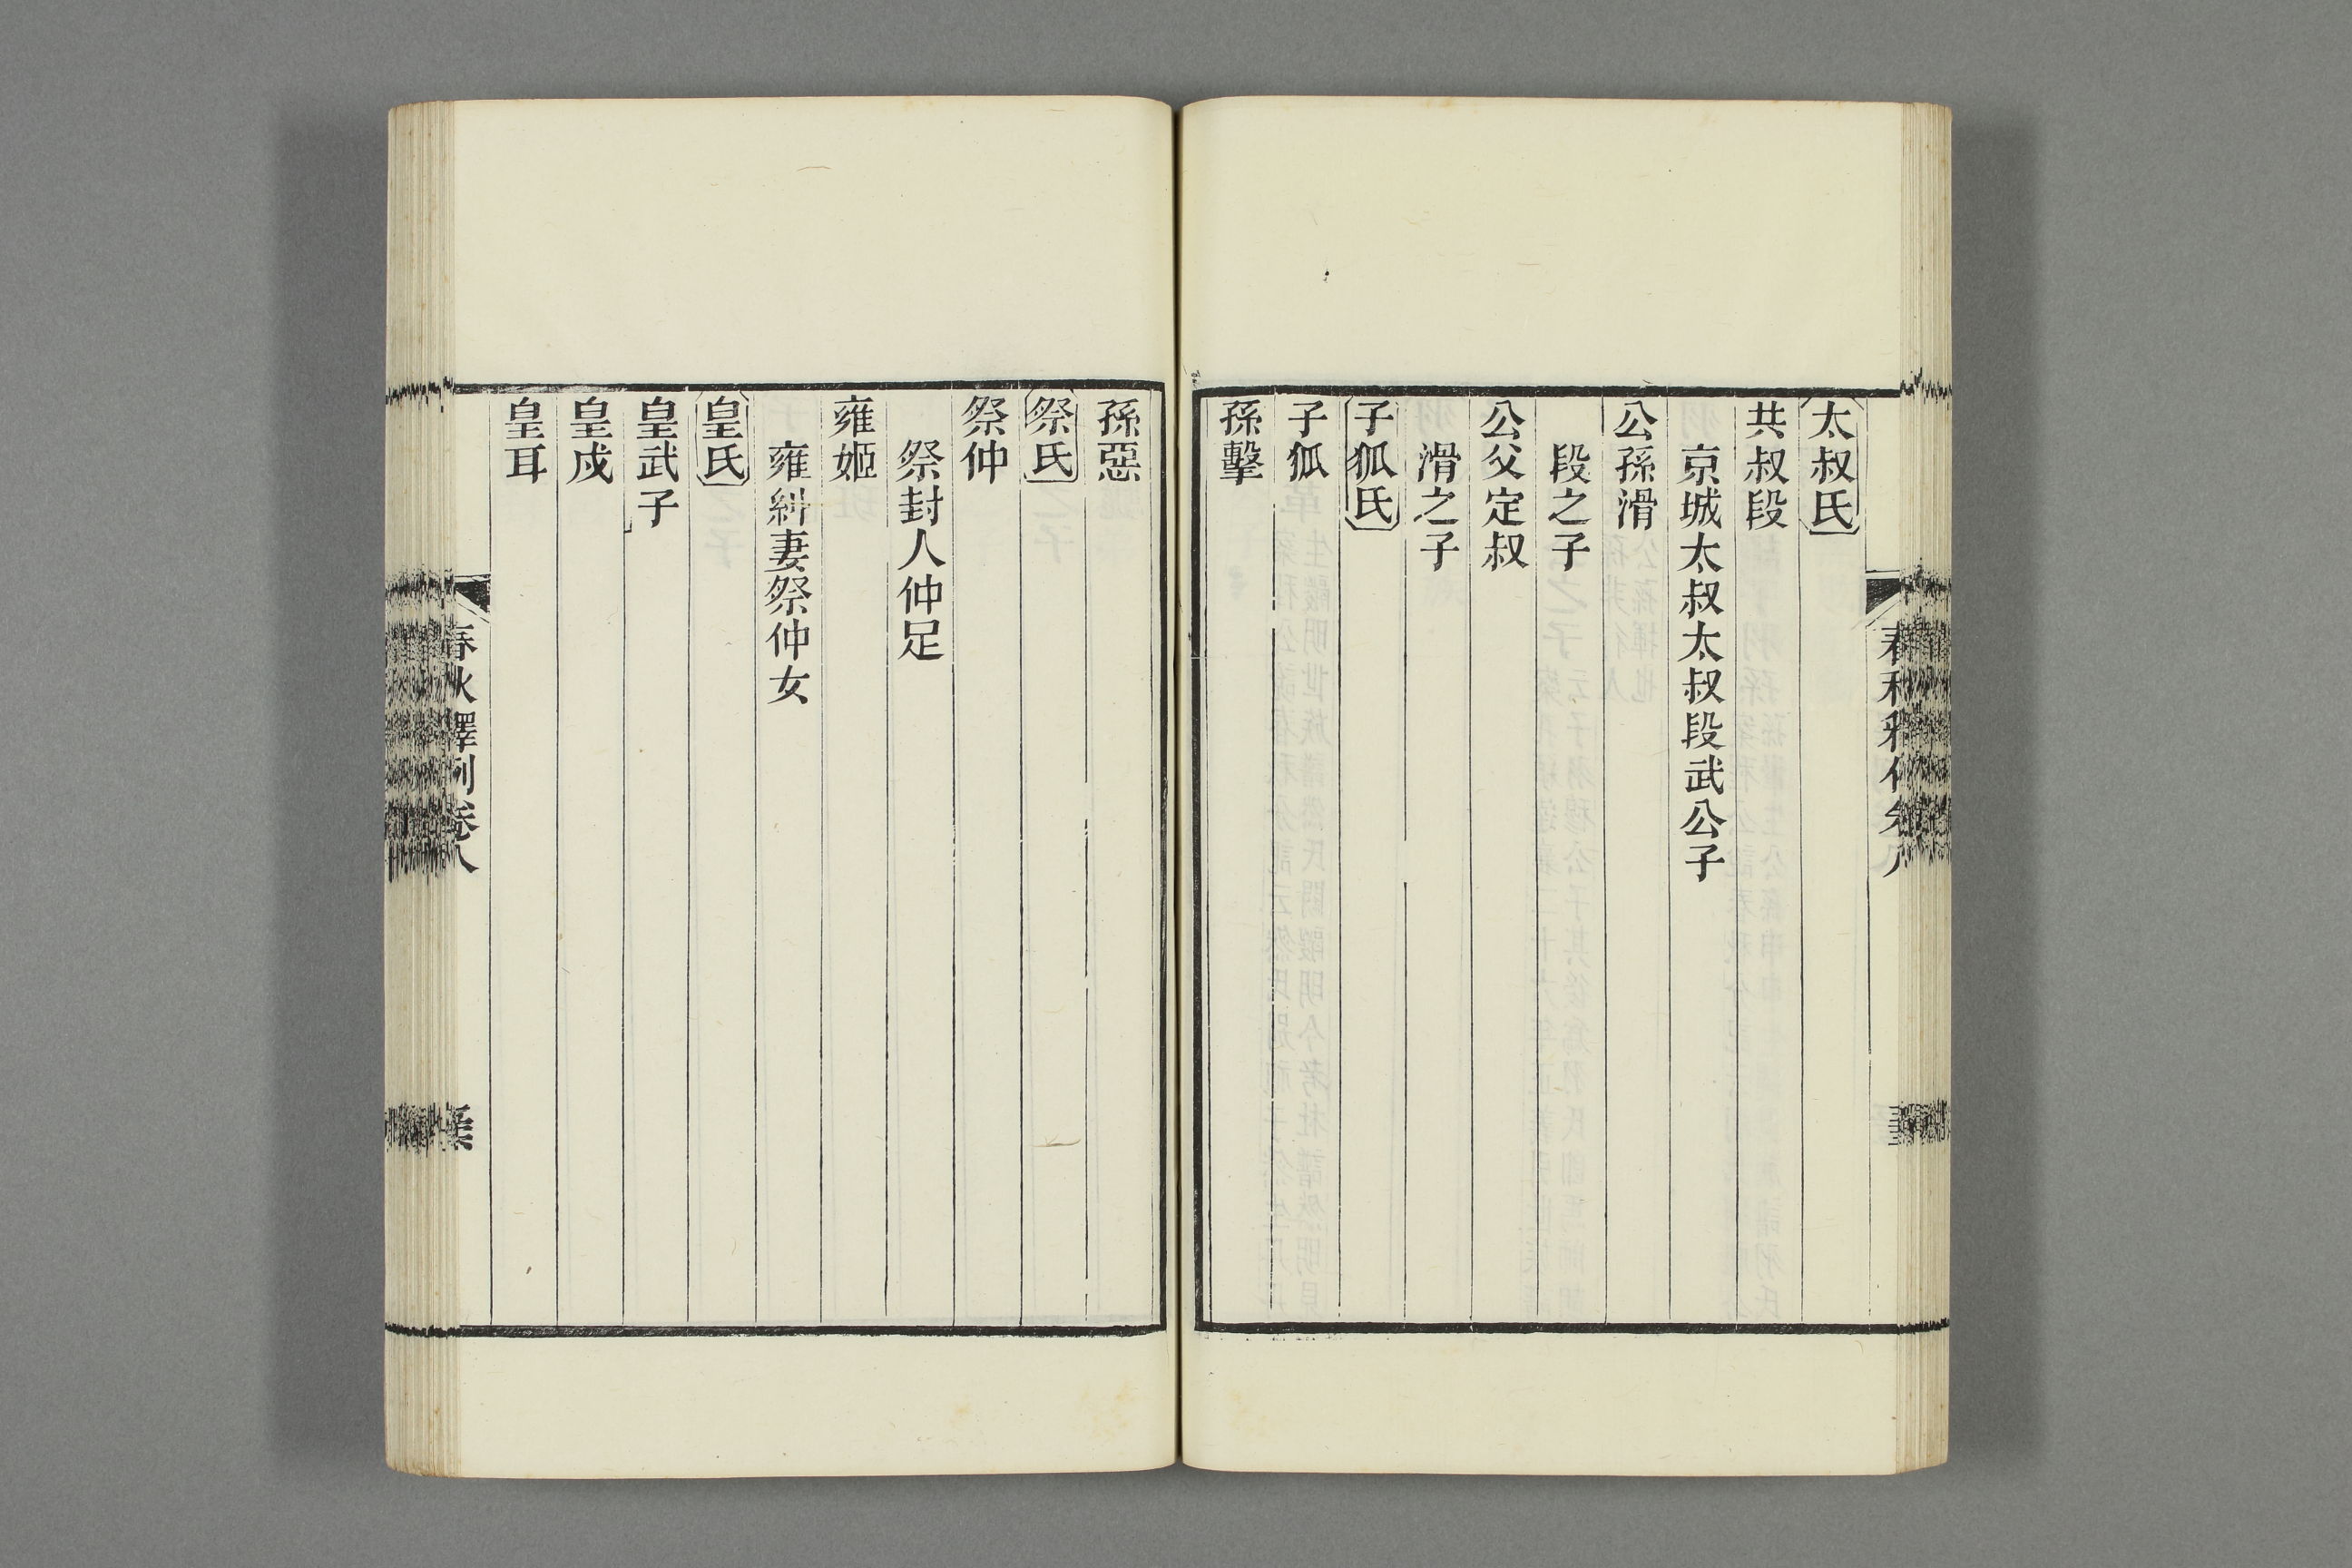 太叔氏
共叔段
京城太叔太叔段武公子
公孫滑
段之子
公父定叔
滑之子
子狐氏
子狐
孫擊
孫惡
祭氏
祭仲
祭封人仲足
雍姬
雍糾妻祭仲女
皇氏
皇武子
皇戍
皇耳
春秋釋例卷八